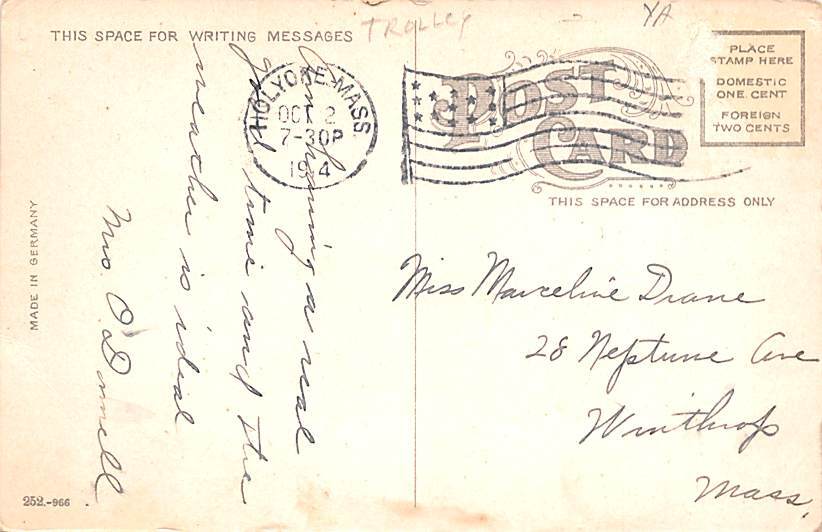 TROLLEY
YA
THIS SPACE FOR WRITING MESSAGES
POST
CARD
PLACE
STAMP HERE
DOMESTIC
ONE CENT
FOREIGN
TWO CENTS
THIS SPACE FOR ADDRESS ONLY
HOLYOKE MASS.
OCT 2
7-30P
1914
Am having a real
good time and the
weather is ideal
Mrs. O'Donnell
Miss Marceline Drane
28 Neptune Ave
Winthrop
Mass,
MADE IN GERMANY
252.-966